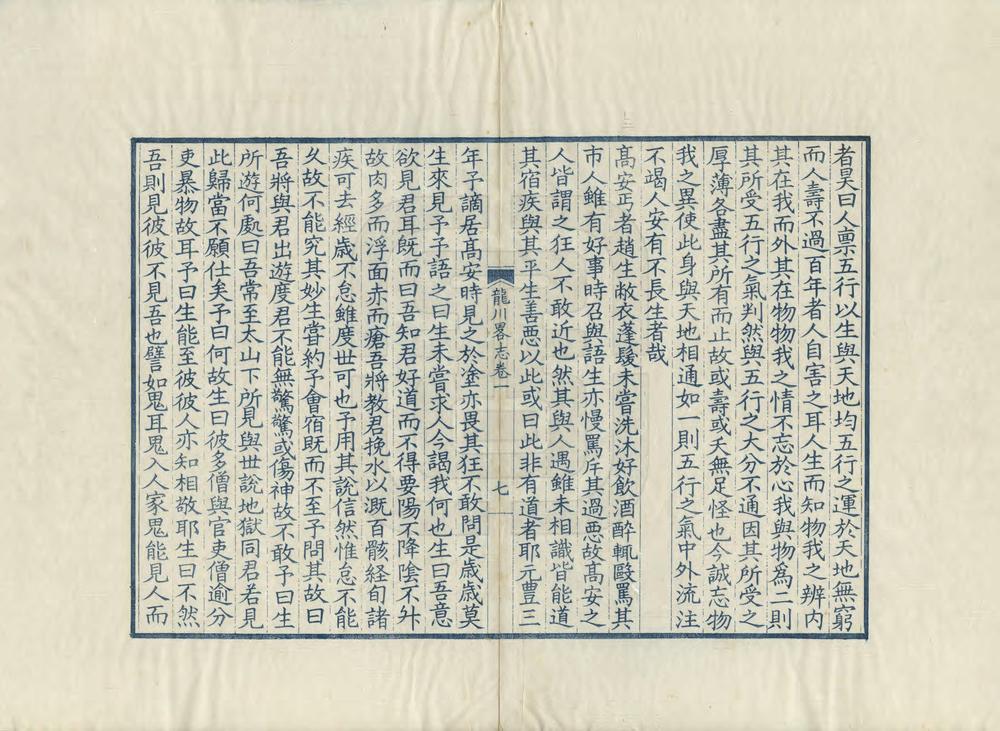 者昊曰人禀五行以生與天地均五行之運於天地無窮
而人壽不過百年者人自害之耳人生而知物我之辨内
其在我而外其在物物我之情不忘於心我與物爲二則
其所受五行之氣判然與五行之大分不通因其所受之
厚薄各盡其所有而止故或壽或夭無足怪也今誠忘物
我之異使此身與天地相通如一則五行之氣中外流注
不竭人安有不長生者哉
髙安丐者趙生敝衣蓬髮未嘗洗沐好飲酒醉輒毆罵其
市人雖有好事時召與語生亦慢罵斥其過惡故髙安之
人皆謂之狂人不敢近也然其與人遇雖未相識皆能道
其宿疾與其平生善惡以此或曰此非有道者耶元豐三
龍川畧志卷一
七
年予謫居髙安時見之於塗亦畏其狂不敢問是歳歳莫
生來見予予語之曰生未嘗求人今謁我何也生曰吾意
欲見君耳旣而曰吾知君好道而不得要陽不降陰不升
故肉多而浮面赤而瘡吾將教君挽水以溉百骸経旬諸
疾可去經歳不怠雖度世可也予用其說信然惟怠不能
久故不能究其妙生嘗約予會宿旣而不至予問其故曰
吾將與君出遊度君不能無驚驚或傷神故不敢予曰生
所遊何處曰吾常至太山下所見與世說地獄同君若見
此歸當不願仕矣予曰何故生曰彼多僧與官吏僧逾分
吏暴物故耳予曰生能至彼彼人亦知相敬耶生曰不然
吾則見彼彼不見吾也譬如鬼耳鬼入人家鬼能見人而